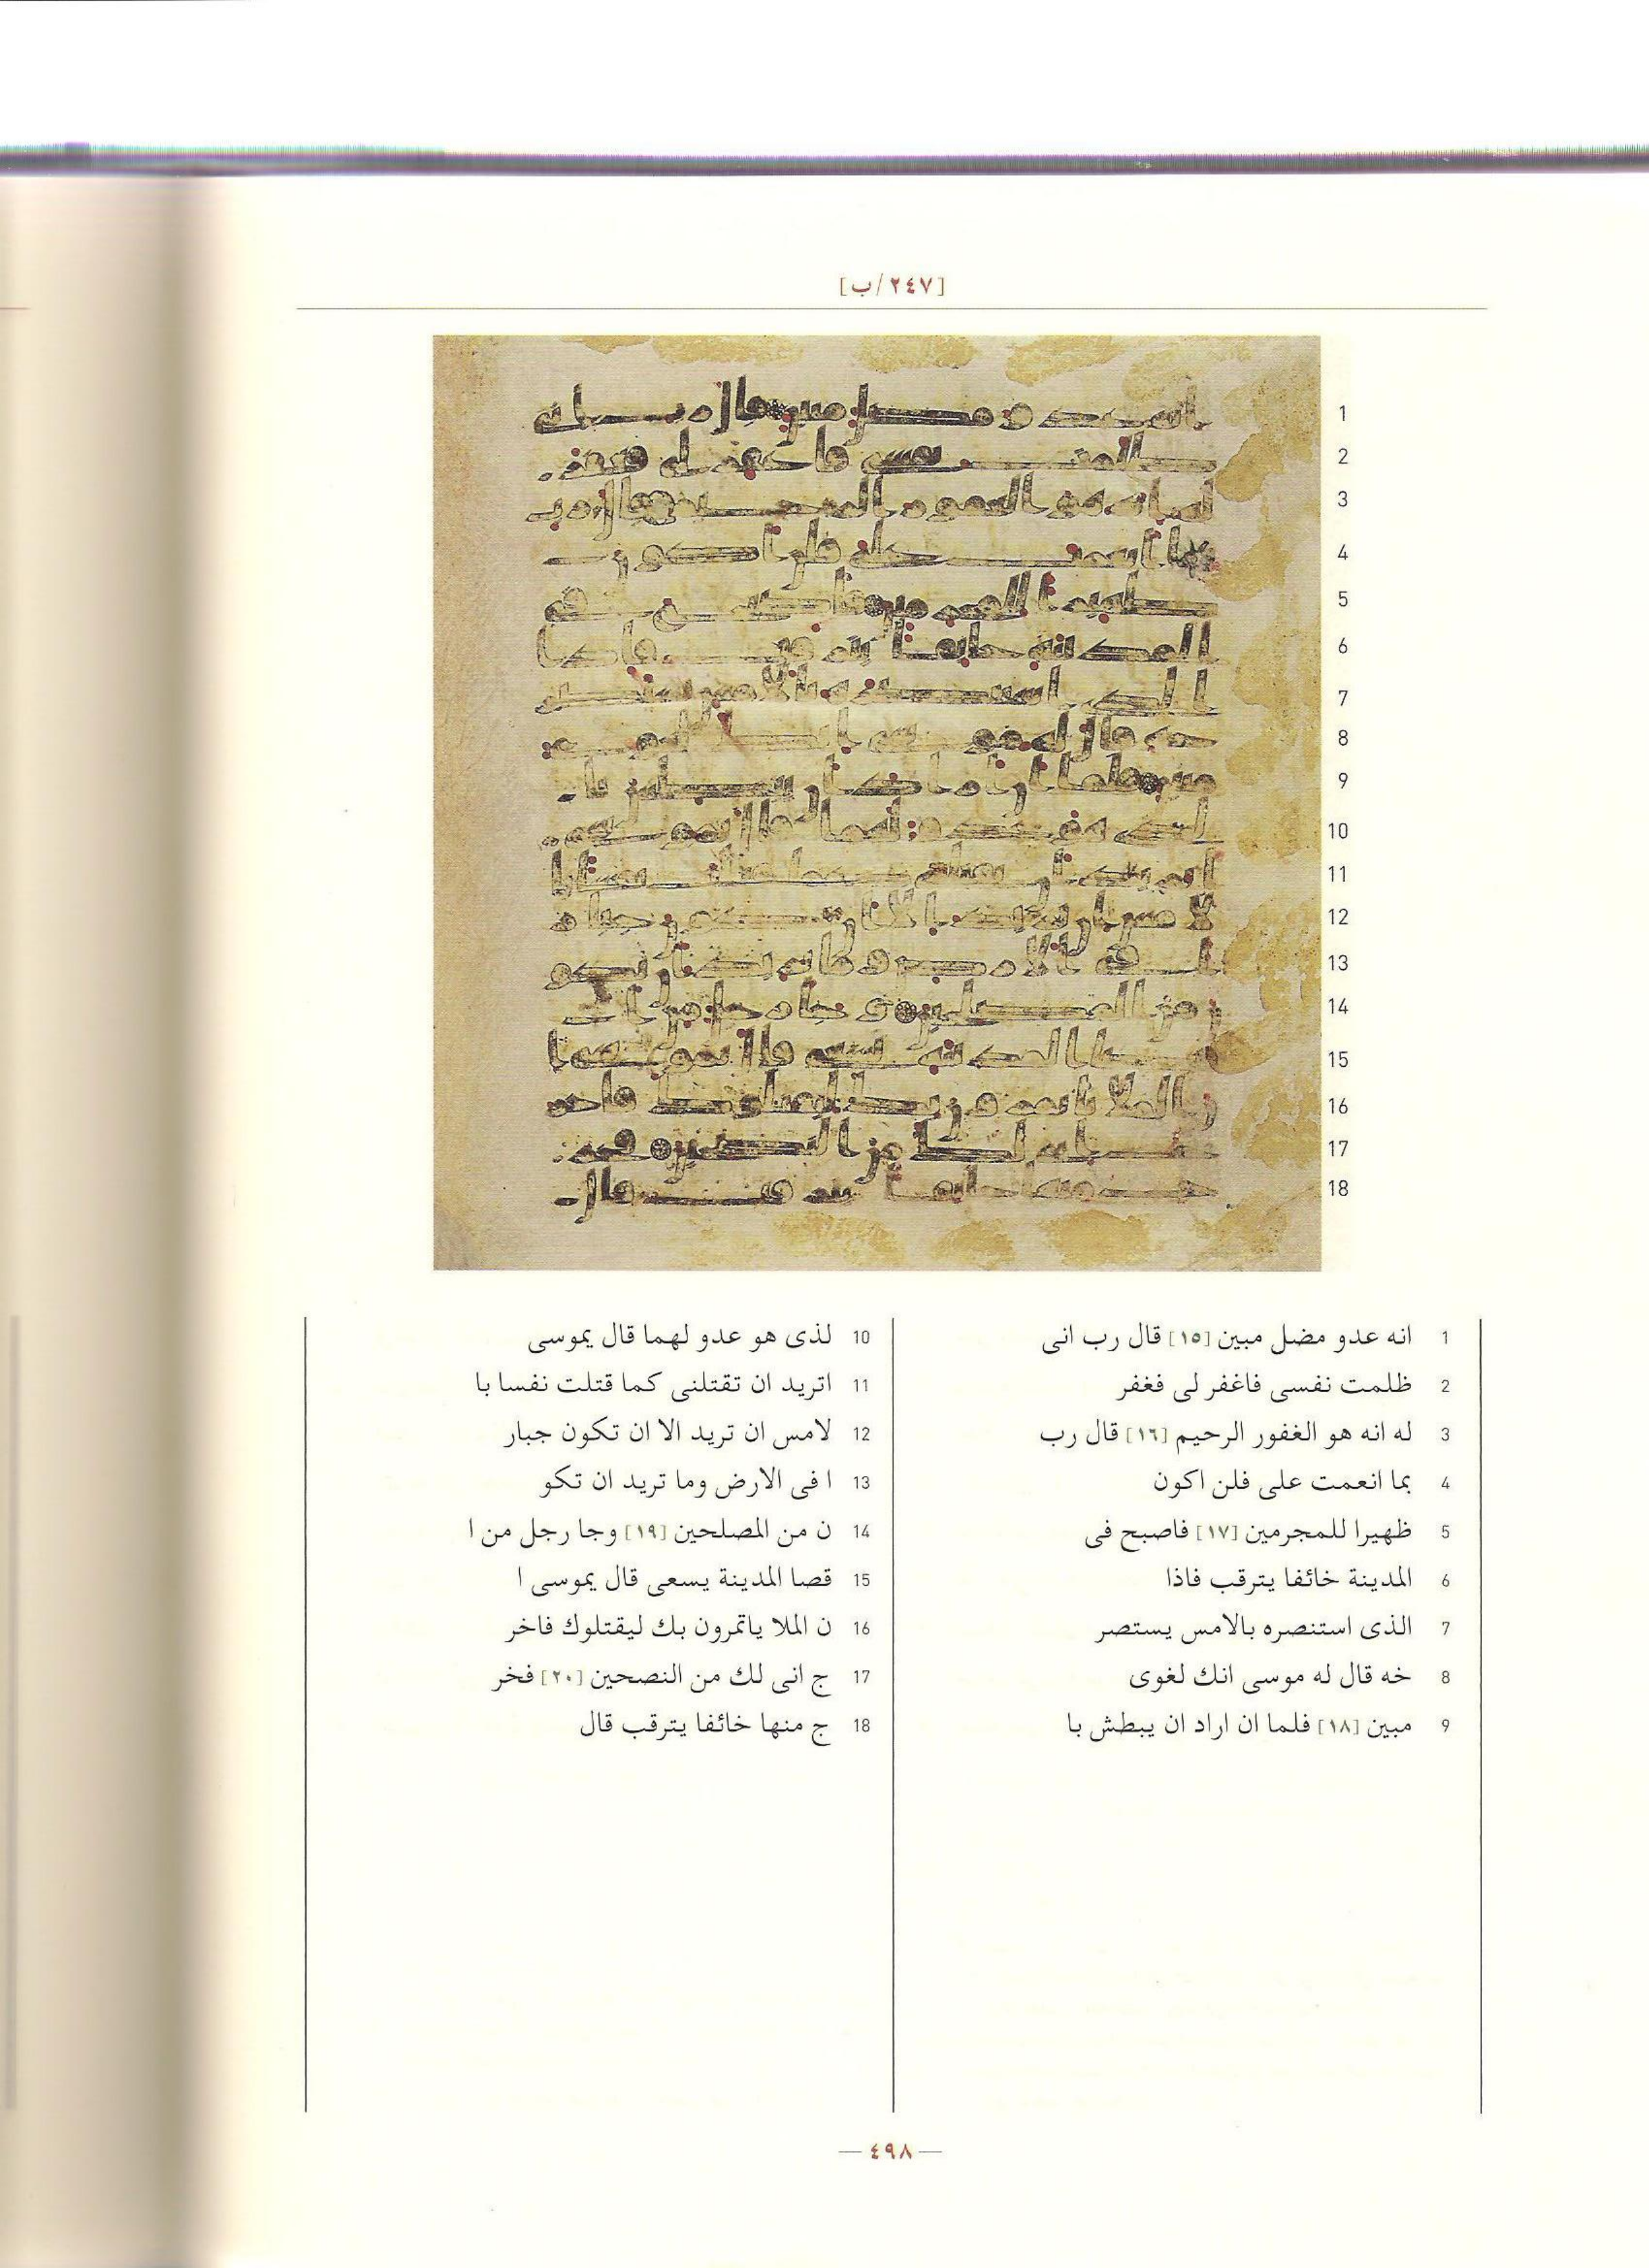 [٢٤٧/ب]
1 انه عدو مضل مبين [١٥] قال رب انى
2 ظلمت نفسى فاغفر لى فغفر
3 له انه هو الغفور الرحيم [١٦] قال رب
4 بما انعمت على فلن اكون
5 ظهيرا للمجرمين [١٧] فاصبح فى
6 المدينة خائفا يترقب فاذا
7 الذى استنصره بالامس يستصر
8 خه قال له موسى انك لغوى
9 مبين [١٨] فلما ان اراد ان يبطش با
10 لذى هو عدو لهما قال يموسى
11 اتريد ان تقتلنى كما قتلت نفسا با
12 لامس ان تريد الا ان تكون جبار
13 ا فى الارض وما تريد ان تكو
14 ن من المصلحين [١٩] وجا رجل من ا
15 قصا المدينة يسعى قال يموسى ا
16 ن الملا ياتمرون بك ليقتلوك فاخر
17 ج انى لك من النصحين [٢٠] فخر
18 ج منها خائفا يترقب قال
— ٤٩٨ —